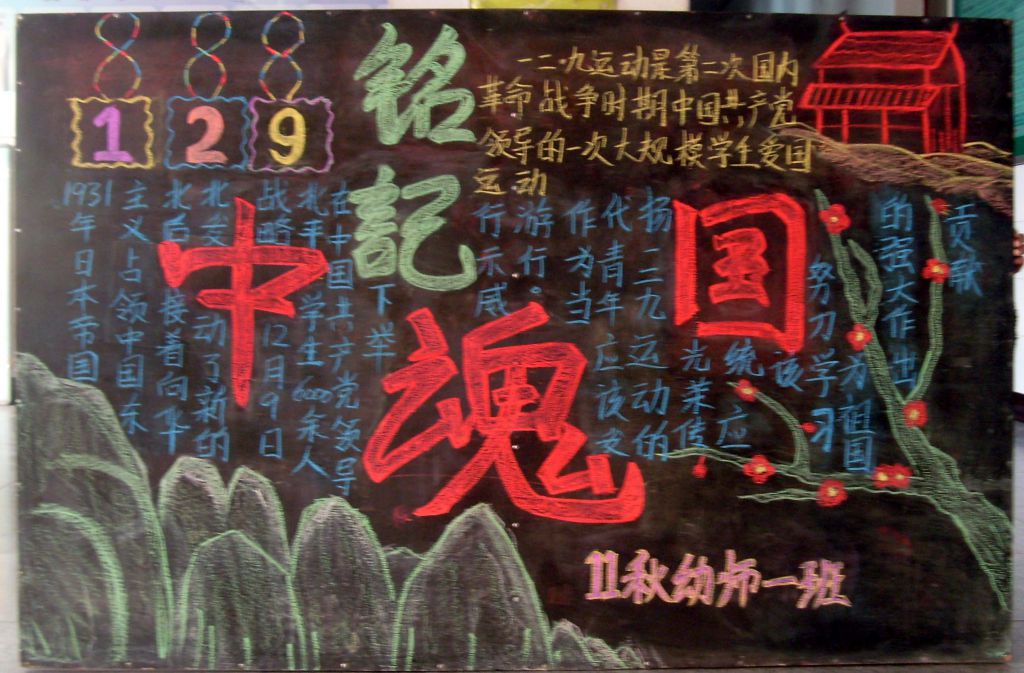 1 2 9
铭記
中国魂
一二·九运动是第二次国内
革命战争时期中国共产党
领导的一次大规模学生爱国
运动
1931年日本帝国
主义占领中国东
北后接着向华
北发动了新的
战略12月9日
北平学生6000余人
在中国共产党领导
下举
行示威
游行。
作为当
代青年应该发
扬一二九运动的
光荣传
统应
该
努力学习
为祖国
的强大作出
贡献
11秋幼师一班